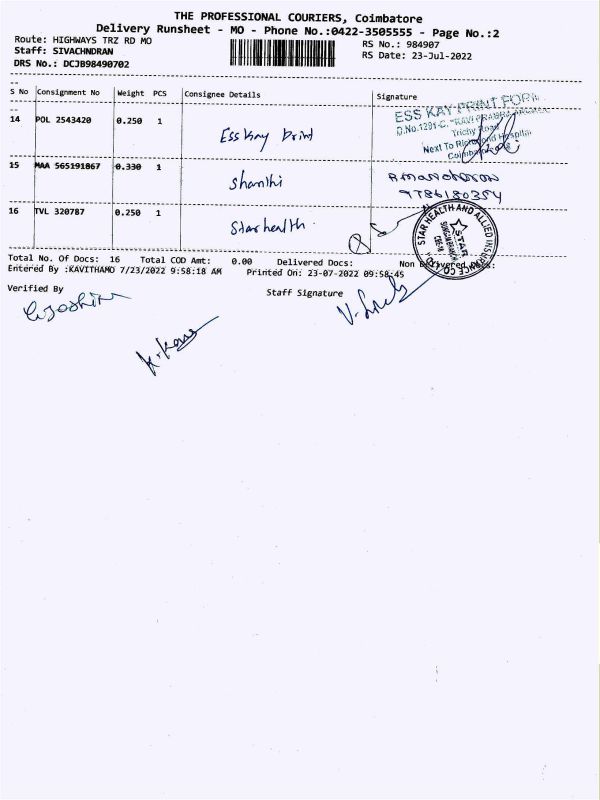 THE PROFESSIONAL COURIERS, Coimbatore
Delivery Runsheet - MO - Phone No.:0422-3505555 - Page No.:2
Route: HIGHWAYS TRZ RD MO
RS No.: 984907
Staff: SIVACHNDRAN
RS Date: 23-Jul-2022
DRS No.: DCJB98490702
S No Consignment No Weight PCS Consignee Details Signature
14 POL 2543420 0.250 1 Ess Kay Print
ESS KAY PRINT FORM
Trichy Road
Next To Richmond Hospital
15 MAA 565191867 0.330 1 Shanthi
R manoharan
9786180354
16 TVL 320787 0.250 1 Star health
STAR HEALTH AND ALLIED INSURANCE CO. LTD.
STAR
Total No. Of Docs: 16 Total COD Amt: 0.00 Delivered Docs: Non Delivered Docs:
Entered By :KAVITHAMO 7/23/2022 9:58:18 AM Printed On: 23-07-2022 09:58:45
Verified By Staff Signature